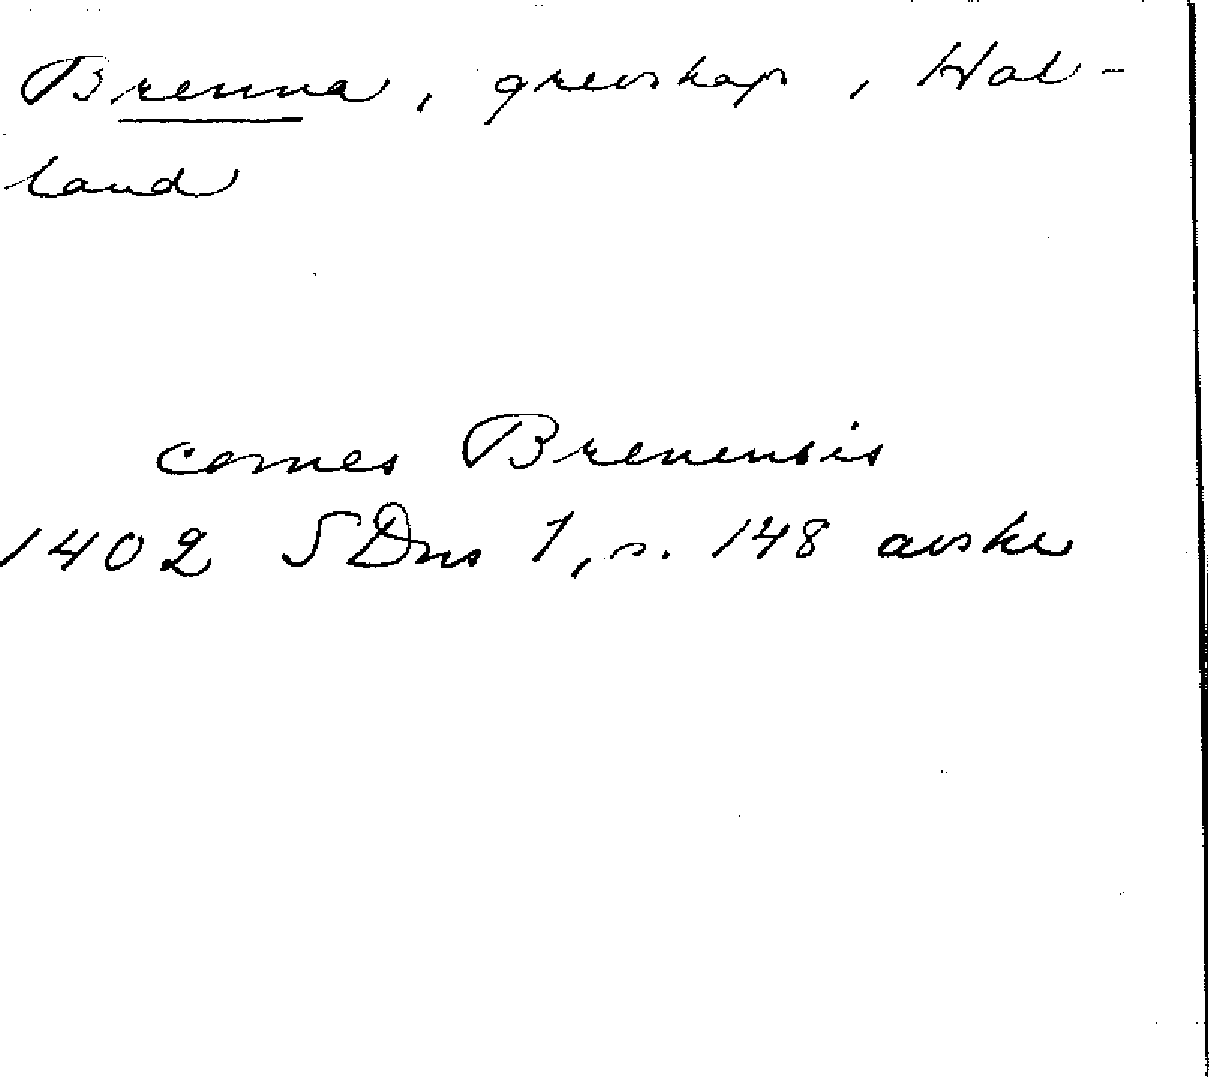 Brenna, grevskap, Hol-
land
comes Brenensis
1402 SDns 1, s. 148 avskr